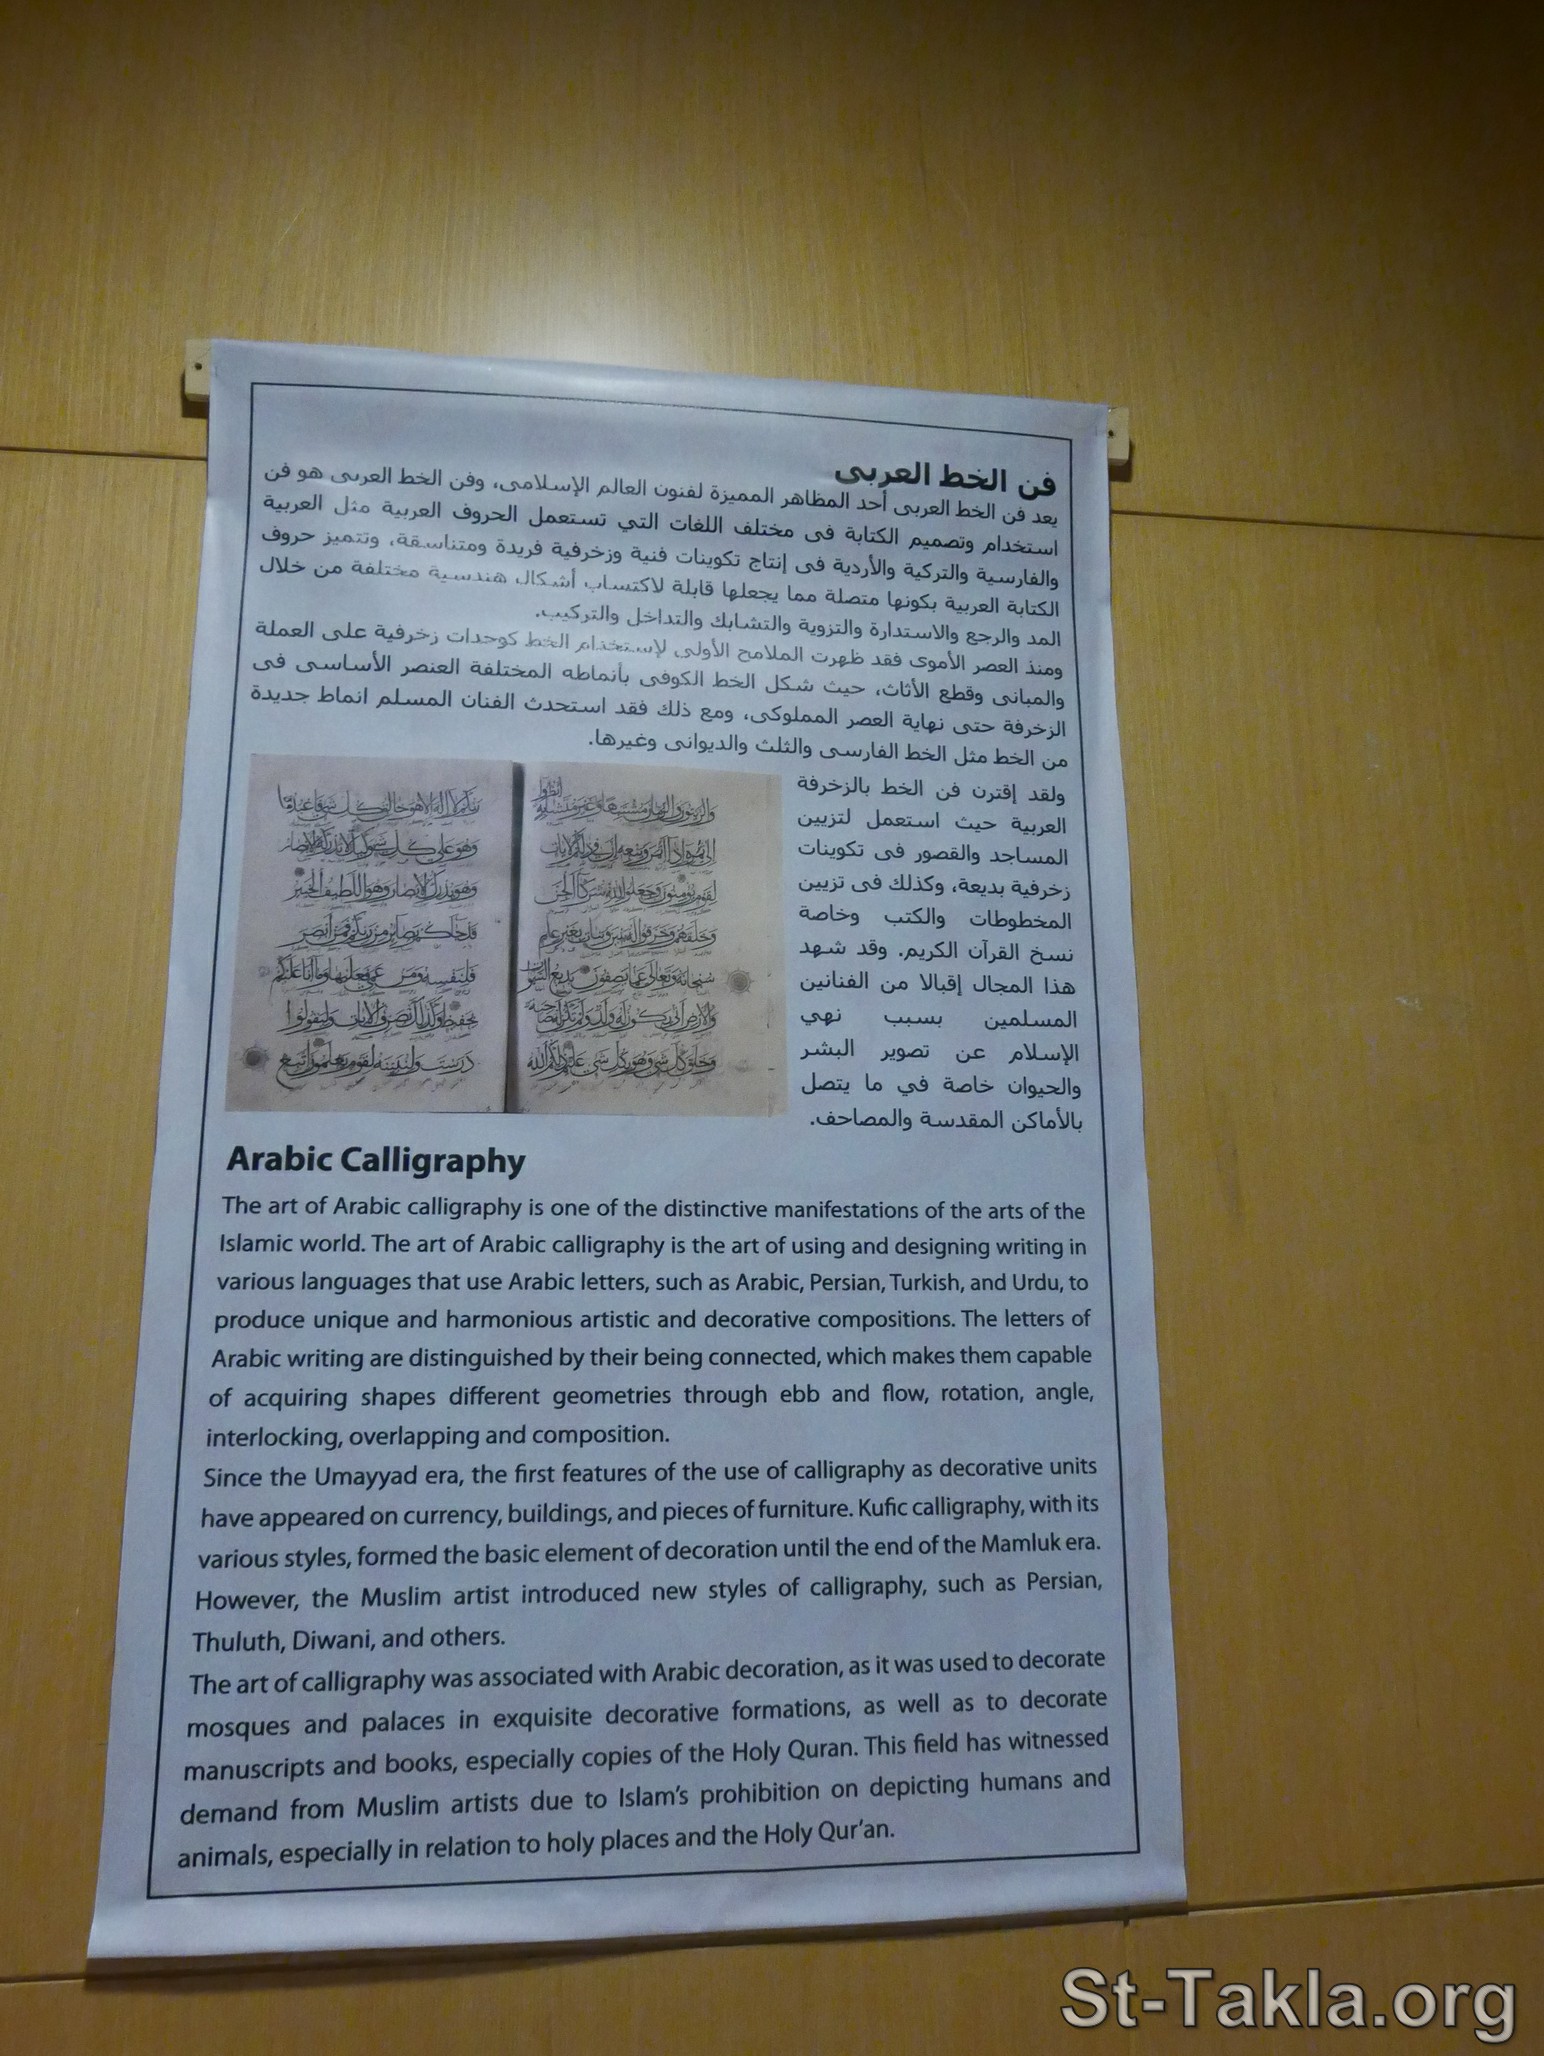 فن الخط العربى
يعد فن الخط العربى أحد المظاهر المميزة لفنون العالم الإسلامى، وفن الخط العربى هو فن
استخدام وتصميم الكتابة فى مختلف اللغات التي تستعمل الحروف العربية مثل العربية
والفارسية والتركية والأردية فى إنتاج تكوينات فنية وزخرفية فريدة ومتناسقة، وتتميز حروف
الكتابة العربية بكونها متصلة مما يجعلها قابلة لاكتساب أشكال هندسية مختلفة من خلال
المد والرجع والاستدارة والتزوية والتشابك والتداخل والتركيب.
ومنذ العصر الأموى فقد ظهرت الملامح الأولى لإستخدام الخط كوحدات زخرفية على العملة
والمبانى وقطع الأثاث، حيث شكل الخط الكوفى بأنماطه المختلفة العنصر الأساسى فى
الزخرفة حتى نهاية العصر المملوكى، ومع ذلك فقد استحدث الفنان المسلم انماط جديدة
من الخط مثل الخط الفارسى والثلث والديوانى وغيرها.
ولقد إقترن فن الخط بالزخرفة
العربية حيث استعمل لتزيين
المساجد والقصور فى تكوينات
زخرفية بديعة، وكذلك فى تزيين
المخطوطات والكتب وخاصة
نسخ القرآن الكريم. وقد شهد
هذا المجال إقبالا من الفنانين
المسلمين بسبب نهي
الإسلام عن تصوير البشر
والحيوان خاصة في ما يتصل
بالأماكن المقدسة والمصاحف.
Arabic Calligraphy
The art of Arabic calligraphy is one of the distinctive manifestations of the arts of the
Islamic world. The art of Arabic calligraphy is the art of using and designing writing in
various languages that use Arabic letters, such as Arabic, Persian, Turkish, and Urdu, to
produce unique and harmonious artistic and decorative compositions. The letters of
Arabic writing are distinguished by their being connected, which makes them capable
of acquiring shapes different geometries through ebb and flow, rotation, angle,
interlocking, overlapping and composition.
Since the Umayyad era, the first features of the use of calligraphy as decorative units
have appeared on currency, buildings, and pieces of furniture. Kufic calligraphy, with its
various styles, formed the basic element of decoration until the end of the Mamluk era.
However, the Muslim artist introduced new styles of calligraphy, such as Persian,
Thuluth, Diwani, and others.
The art of calligraphy was associated with Arabic decoration, as it was used to decorate
mosques and palaces in exquisite decorative formations, as well as to decorate
manuscripts and books, especially copies of the Holy Quran. This field has witnessed
demand from Muslim artists due to Islam's prohibition on depicting humans and
animals, especially in relation to holy places and the Holy Qur'an.
St-Takla.org